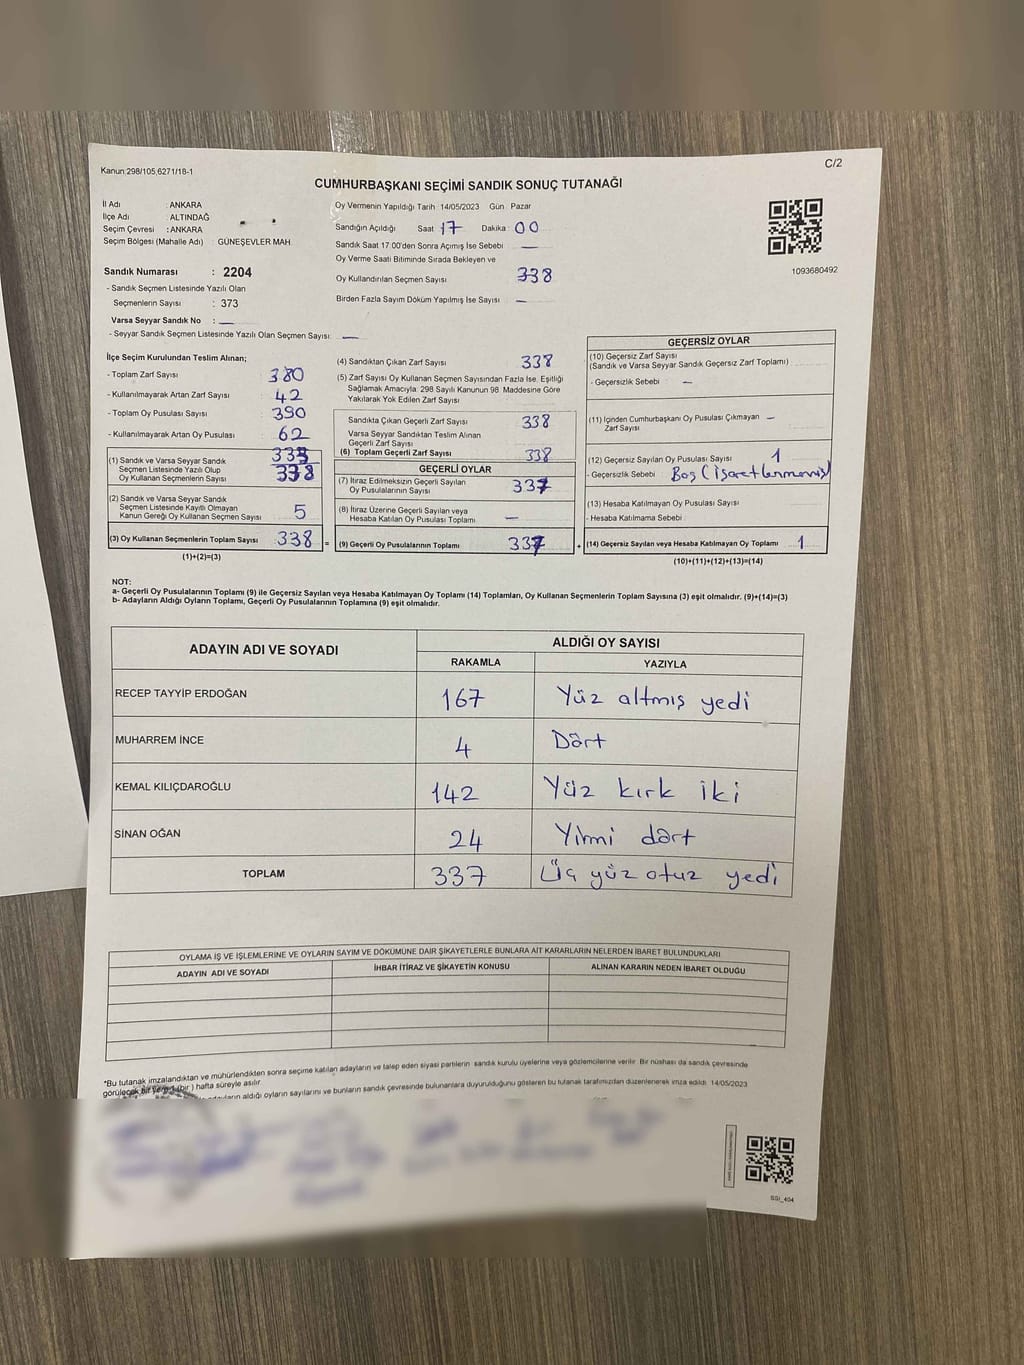 C/2
Kanun:298/105,6271/18-1
CUMHURBAŞKANI SEÇİMİ SANDIK SONUÇ TUTANAĞI
İl Adı : ANKARA
İlçe Adı : ALTINDAĞ
Seçim Çevresi : ANKARA
Seçim Bölgesi (Mahalle Adı) : GÜNEŞEVLER MAH.
Sandık Numarası : 2204
- Sandık Seçmen Listesinde Yazılı Olan
Seçmenlerin Sayısı : 373
Varsa Seyyar Sandık No : —
- Seyyar Sandık Seçmen Listesinde Yazılı Olan Seçmen Sayısı: —
Oy Vermenin Yapıldığı Tarih 14/05/2023 Gün Pazar
Sandığın Açıldığı Saat 17 Dakika 00
Sandık Saat 17:00'den Sonra Açımış İse Sebebi —
Oy Verme Saati Bitiminde Sırada Bekleyen ve
Oy Kullandırılan Seçmen Sayısı 338
Birden Fazla Sayım Döküm Yapılmış İse Sayısı —
1093680492
İlçe Seçim Kurulundan Teslim Alınan;
- Toplam Zarf Sayısı 380
- Kullanılmayarak Artan Zarf Sayısı 42
- Toplam Oy Pusulası Sayısı 390
- Kullanılmayarak Artan Oy Pusulası 62
333
(1) Sandık ve Varsa Seyyar Sandık
Seçmen Listesinde Yazılı Olup
Oy Kullanan Seçmenlerin Sayısı
(2) Sandık ve Varsa Seyyar Sandık
Seçmen Listesinde Kayıtlı Olmayan
Kanun Gereği Oy Kullanan Seçmen Sayısı 5
(3) Oy Kullanan Seçmenlerin Toplam Sayısı 338 =
(1)+(2)=(3)
(4) Sandıktan Çıkan Zarf Sayısı 338
(5) Zarf Sayısı Oy Kullanan Seçmen Sayısından Fazla İse, Eşitliği
Sağlamak Amacıyla; 298 Sayılı Kanunun 98. Maddesine Göre
Yakılarak Yok Edilen Zarf Sayısı
Sandıkta Çıkan Geçerli Zarf Sayısı 338
Varsa Seyyar Sandıktan Teslim Alınan
Geçerli Zarf Sayısı
(6) Toplam Geçerli Zarf Sayısı 338
GEÇERLİ OYLAR
(7) İtiraz Edilmeksizin Geçerli Sayılan
Oy Pusulalarının Sayısı 337
(8) İtiraz Üzerine Geçerli Sayılan veya
Hesaba Katılan Oy Pusulası Toplamı —
(9) Geçerli Oy Pusulalarının Toplamı 337 +
GEÇERSİZ OYLAR
(10) Geçersiz Zarf Sayısı
(Sandık ve Varsa Seyyar Sandık Geçersiz Zarf Toplamı)
- Geçersizlik Sebebi —
(11) İçinden Cumhurbaşkanı Oy Pusulası Çıkmayan —
Zarf Sayısı
(12) Geçersiz Sayılan Oy Pusulası Sayısı 1
- Geçersizlik Sebebi Boş (İşaretlenmemiş)
(13) Hesaba Katılmayan Oy Pusulası Sayısı
- Hesaba Katılmama Sebebi
(14) Geçersiz Sayılan veya Hesaba Katılmayan Oy Toplamı 1
(10)+(11)+(12)+(13)=(14)
NOT:
a- Geçerli Oy Pusulalarının Toplamı (9) ile Geçersiz Sayılan veya Hesaba Katılmayan Oy Toplamı (14) Toplamları, Oy Kullanan Seçmenlerin Toplam Sayısına (3) eşit olmalıdır. (9)+(14)=(3)
b- Adayların Aldığı Oyların Toplamı, Geçerli Oy Pusulalarının Toplamına (9) eşit olmalıdır.
ADAYIN ADI VE SOYADI ALDIĞI OY SAYISI
RAKAMLA YAZIYLA
RECEP TAYYİP ERDOĞAN 167 Yüz altmış yedi
MUHARREM İNCE 4 Dört
KEMAL KILIÇDAROĞLU 142 Yüz kırk iki
SİNAN OĞAN 24 Yirmi dört
TOPLAM 337 Üç yüz otuz yedi
OYLAMA İŞ VE İŞLEMLERİNE VE OYLARIN SAYIM VE DÖKÜMÜNE DAİR ŞİKAYETLERLE BUNLARA AİT KARARLARIN NELERDEN İBARET BULUNDUKLARI
ADAYIN ADI VE SOYADI İHBAR İTİRAZ VE ŞİKAYETİN KONUSU ALINAN KARARIN NEDEN İBARET OLDUĞU
*Bu tutanak imzalandıktan ve mühürlendikten sonra seçime katılan adayların ve talep eden siyasi partilerin sandık kurulu üyelerine veya gözlemcilerine verilir. Bir nüshası da sandık çevresinde
görülecek bir yere (bir) hafta süreyle asılır.
aldığı oyların sayılarını ve bunların sandık çevresinde bulunanlara duyurulduğunu gösteren bu tutanak tarafımızdan düzenlenerek imza edildi. 14/05/2023
SSI_404